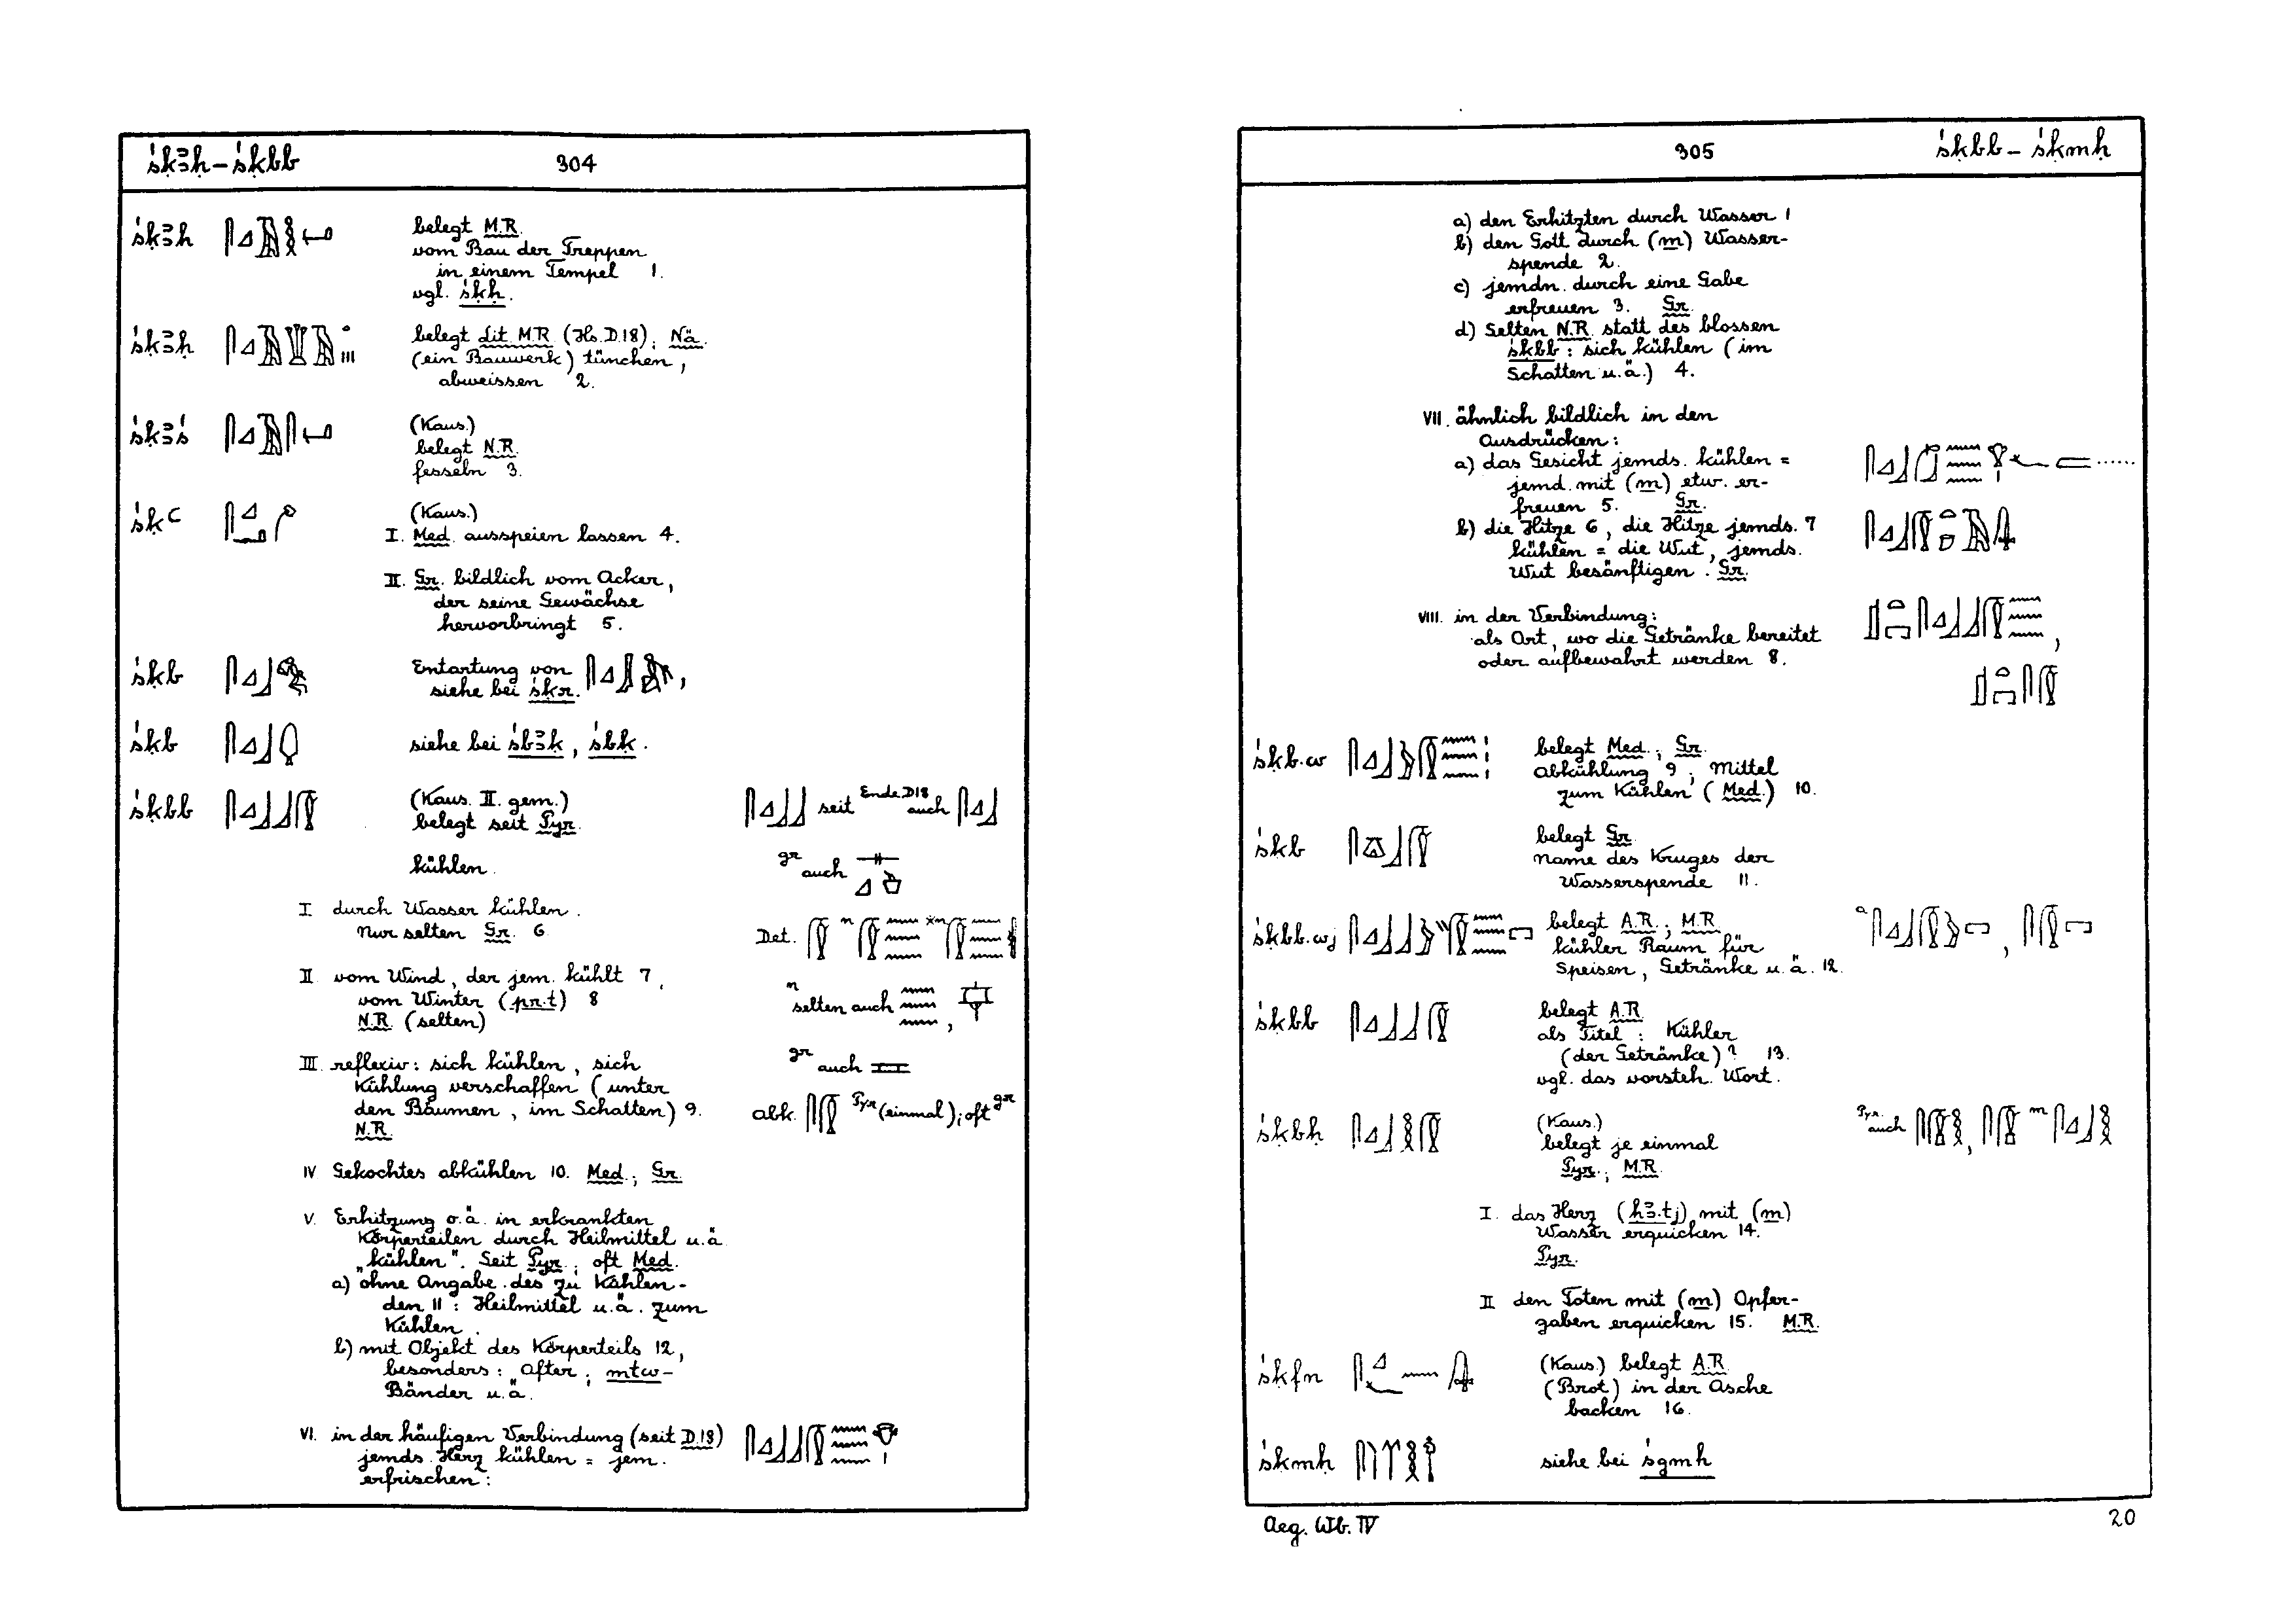 śḳꜣḥ – śḳbb 304
śḳꜣḥ belegt M.R.
vom Bau der Treppen
in einem Tempel 1.
vgl. śḳḥ.
śḳꜣḥ belegt Lit. M.R (Hs. D.18); Nä.
(ein Bauwerk) tünchen,
abweissen 2.
śḳꜣś (Kaus.)
belegt N.R.
fesseln 3.
śḳꜥ (Kaus.)
I. Med. ausspeien lassen 4.
II. Gr. bildlich vom Acker,
der seine Gewächse
hervorbringt 5.
śḳb Entartung von ,
siehe bei śḳr.
śḳb siehe bei śbꜣḳ, śbḳ.
śḳbb (Kaus. II. gem.) seit Ende D18 auch
belegt seit Pyr.
kühlen. gr auch
I durch Wasser kühlen.
Nur selten Gr. 6. Det. n *n
II vom Wind, der jem. kühlt 7,
vom Winter (pr.t) 8 n selten auch ,
N.R. (selten)
III reflexiv: sich kühlen, sich gr auch
Kühlung verschaffen (unter
den Bäumen, im Schatten) 9. abk. Pyr (einmal); oft gr
N.R.
IV Gekochtes abkühlen 10. Med.; Gr.
V. Erhitzung o.ä. in erkrankten
Körperteilen durch Heilmittel u.ä.
„kühlen“. Seit Pyr.; oft Med.
a) ohne Angabe des zu Kühlen-
den 11: Heilmittel u.ä. zum
Kühlen.
b) mit Objekt des Körperteils 12,
besonders: After; mtw-
Bänder u.ä.
VI. in der häufigen Verbindung (seit D.18)
jemds. Herz kühlen = jem.
erfrischen:
305 śḳbb – śḳmḥ
a) den Erhitzten durch Wasser 1
b) den Gott durch (m) Wasser-
spende 2.
c) jemdn. durch eine Gabe
erfreuen 3. Gr.
d) Selten N.R. statt des blossen
śḳbb: sich kühlen (im
Schatten u.ä.) 4.
VII. ähnlich bildlich in den
Ausdrücken:
a) das Gesicht jemds. kühlen =
jemd. mit (m) etw. er-
freuen 5. Gr.
b) die Hitze 6, die Hitze jemds. 7
kühlen = die Wut, jemds.
Wut besänftigen. Gr.
VIII. in der Verbindung:
als Ort, wo die Getränke bereitet
oder aufbewahrt werden 8. ,
śḳb.w belegt Med.; Gr.
Abkühlung 9; Mittel
zum Kühlen (Med.) 10.
śḳb belegt Gr.
Name des Kruges der
Wasserspende 11.
śḳbb.wj belegt A.R.; M.R. a ,
kühler Raum für
Speisen, Getränke u.ä. 12.
śḳbb belegt A.R.
als Titel: Kühler
(der Getränke)? 13.
vgl. das vorsteh. Wort.
śḳbḥ (Kaus.) Pyr. auch , m
belegt je einmal
Pyr.; M.R.
I. das Herz (ḥꜣ.tj) mit (m)
Wasser erquicken 14.
Pyr.
II den Toten mit (m) Opfer-
gaben erquicken 15. M.R.
śḳfn (Kaus.) belegt A.R.
(Brot) in der Asche
backen 16.
śḳmḥ siehe bei śgmḥ
Aeg. Wb. IV 20